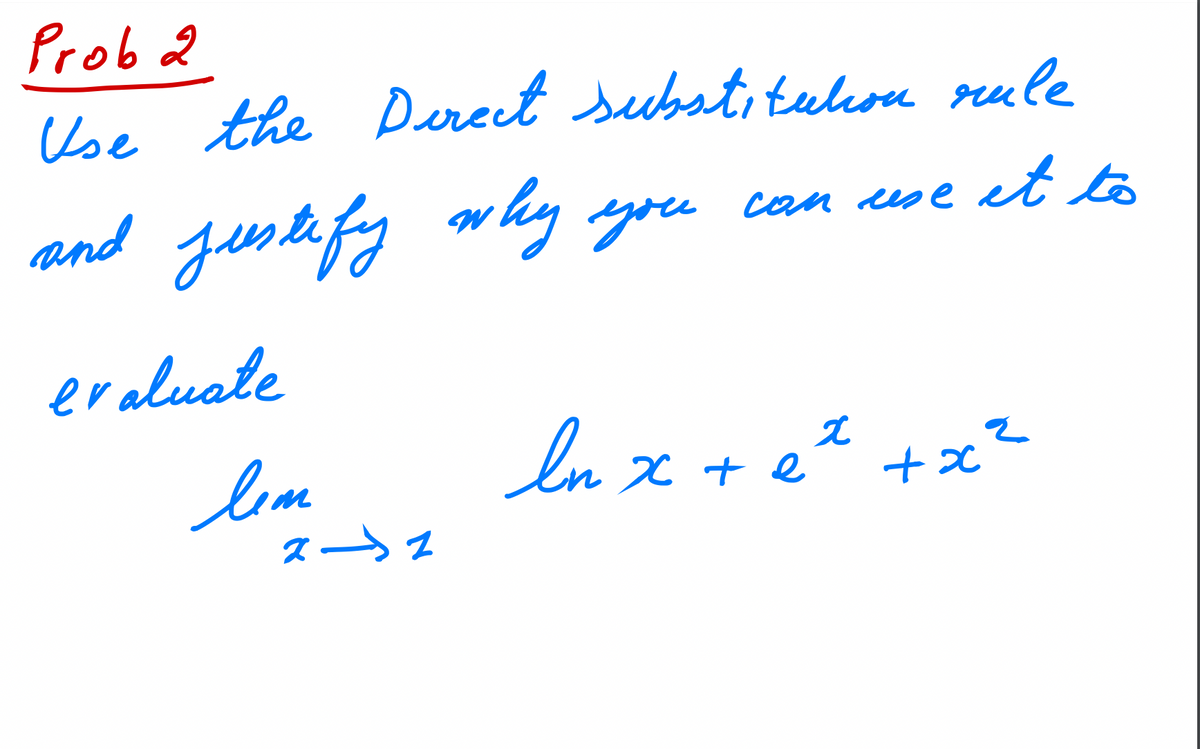 Prob 2
Use the Direct substitution rule
and justify why you can use it to
evaluate
lim x→1 ln x + e^x + x^2